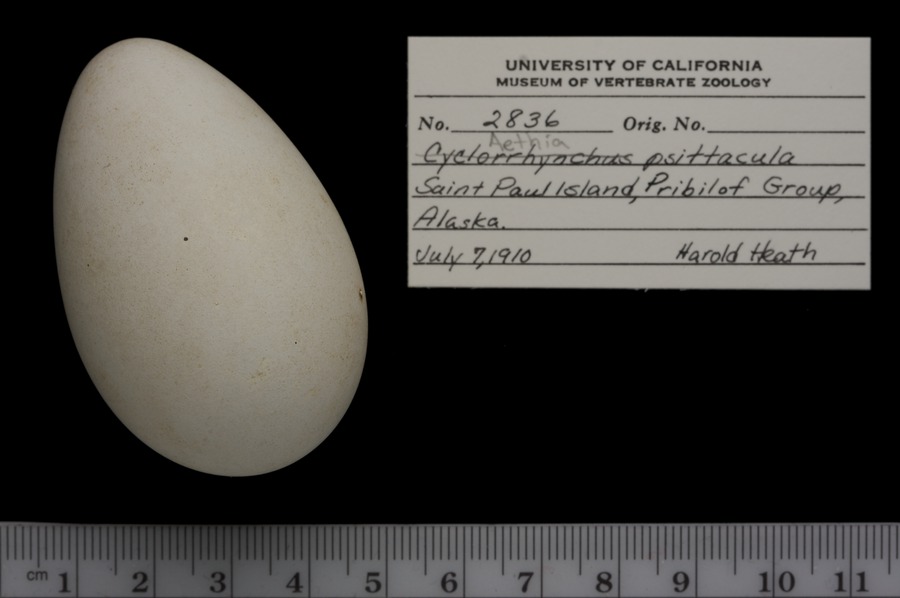 UNIVERSITY OF CALIFORNIA
MUSEUM OF VERTEBRATE ZOOLOGY
No. 2836 Orig. No.
Aethia
Cyclorrhynchus psittacula
Saint Paul Island, Pribilof Group,
Alaska.
July 7, 1910 Harold Heath
cm 1 2 3 4 5 6 7 8 9 10 11